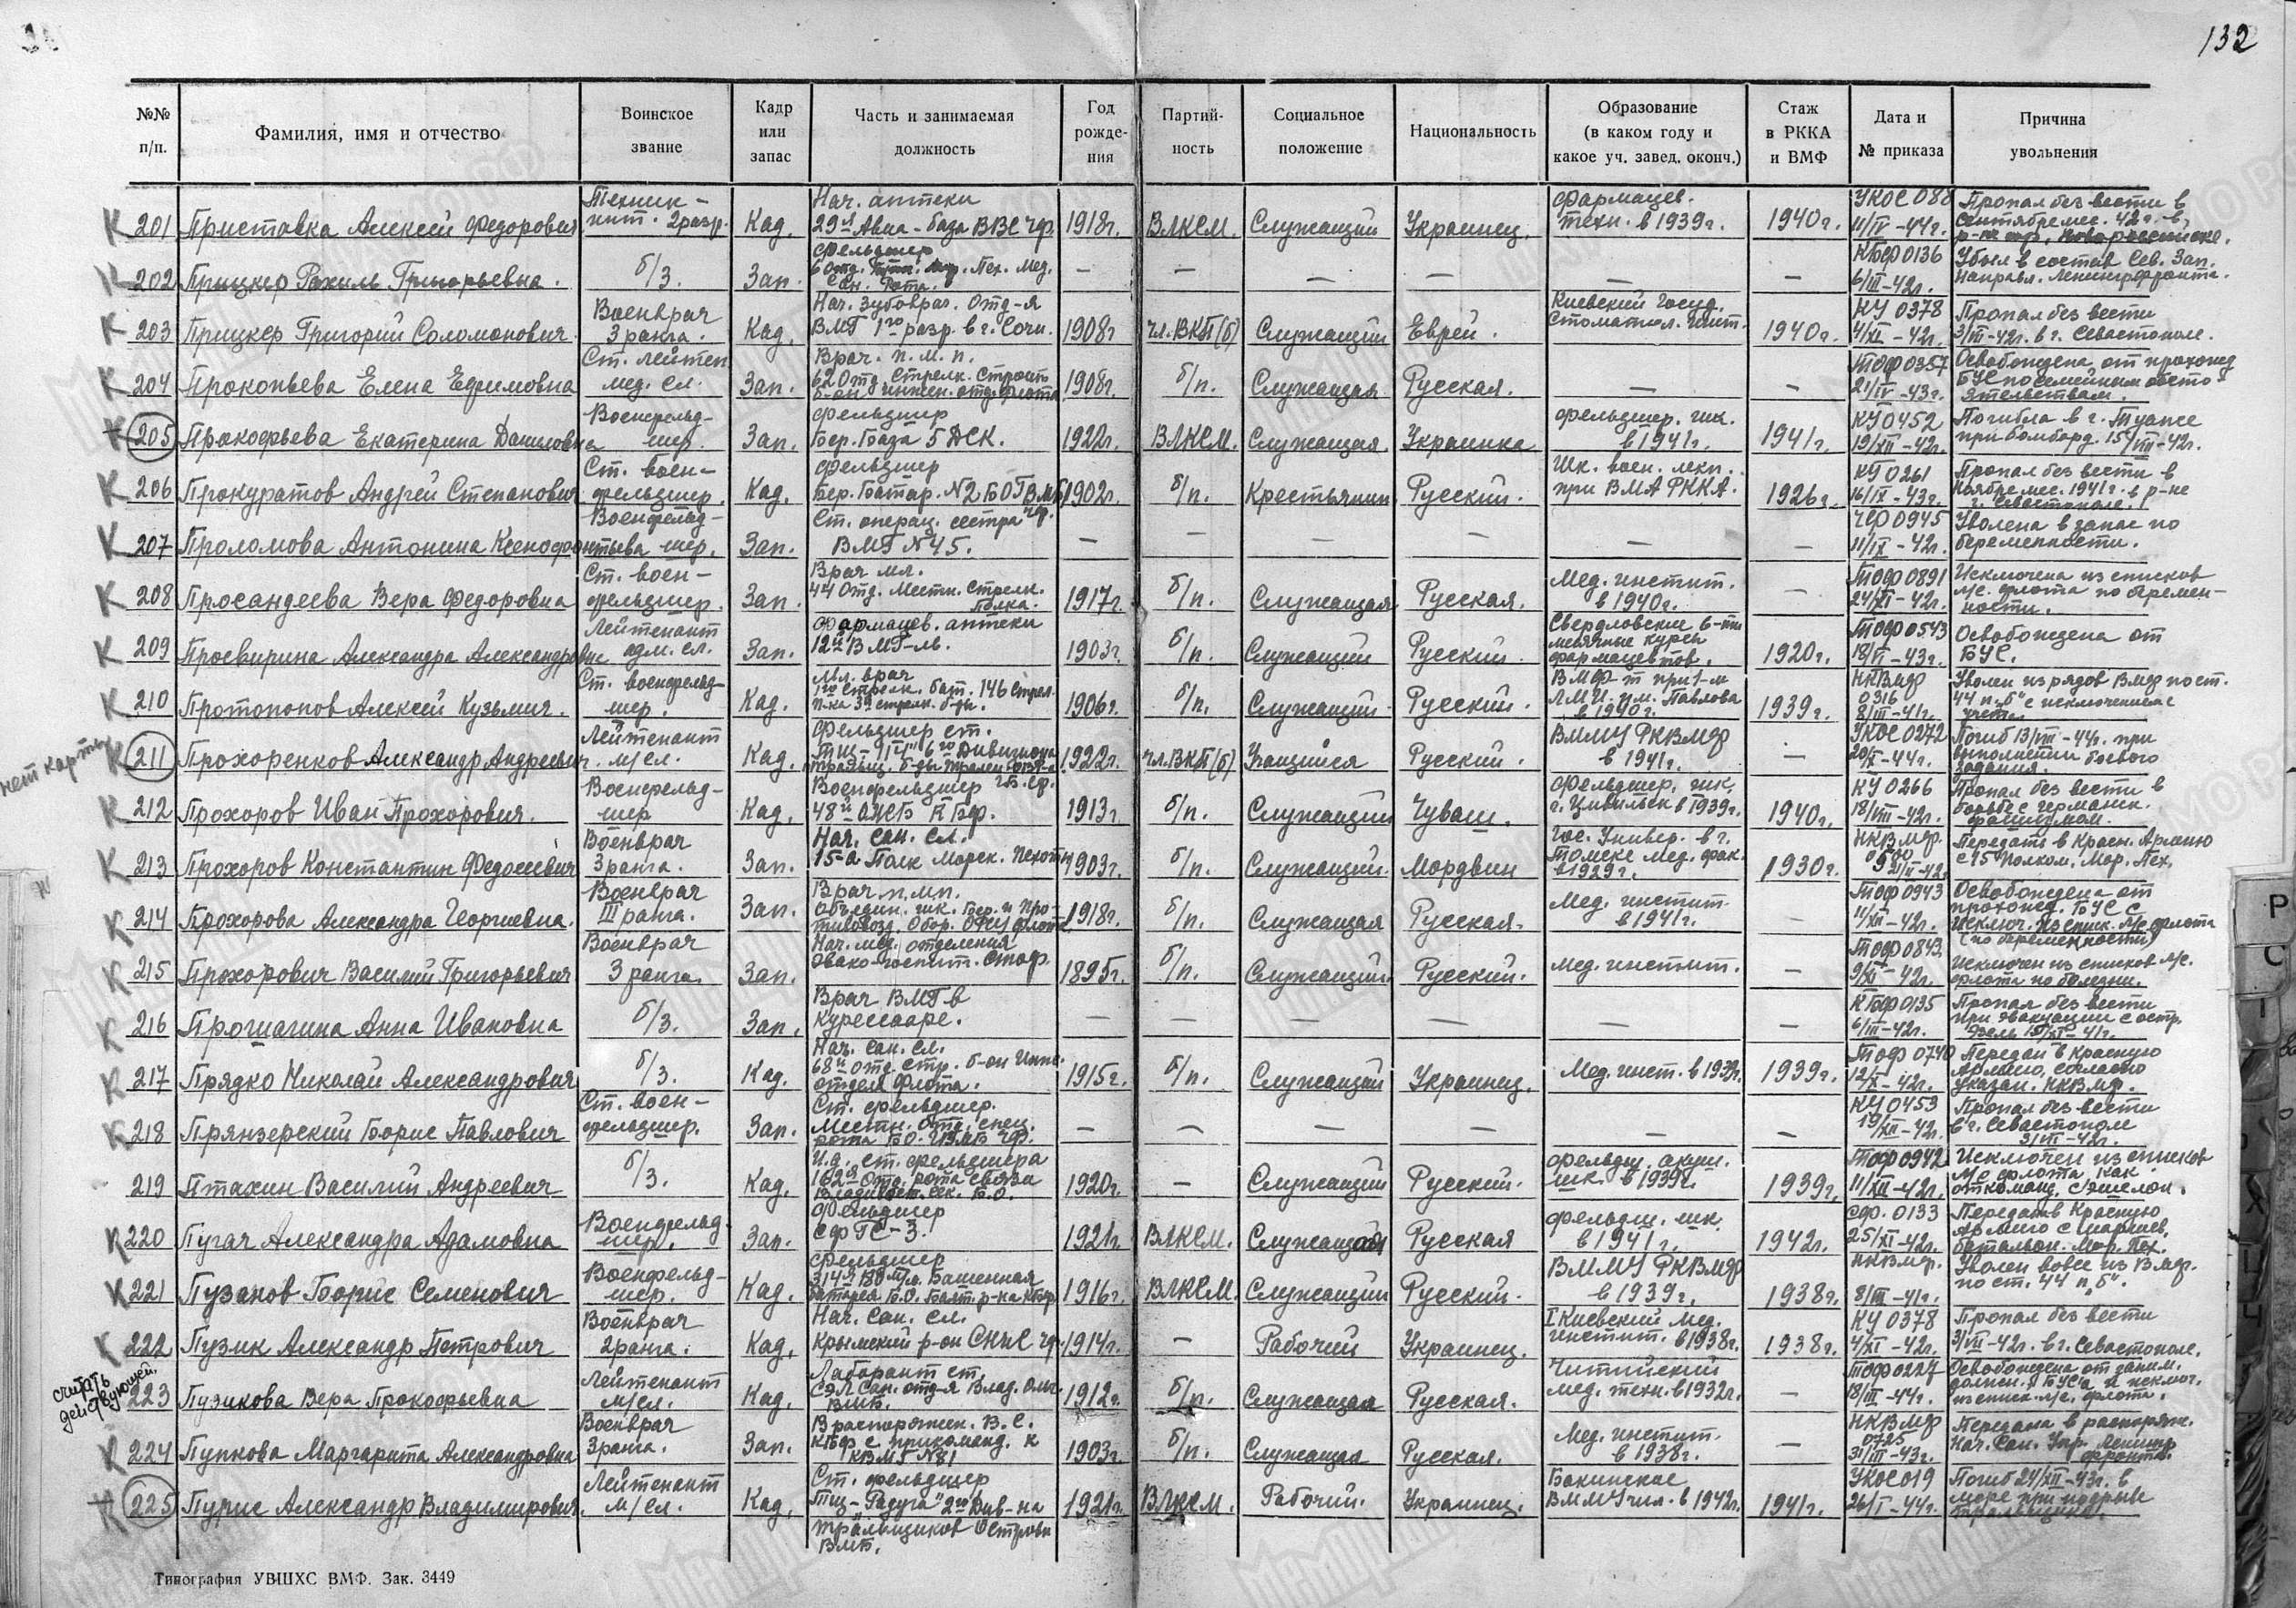 132
№№ п/п. Фамилия, имя и отчество Воинское звание Кадр или запас Часть и занимаемая должность Год рожде-ния Партий-ность Социальное положение Национальность Образование (в каком году и какое уч. завед. оконч.) Стаж в РККА и ВМФ Дата и № приказа Причина увольнения
К 201 Приставка Алексей Федорович Техник-инт. 2 разр. Кад. Нач. аптеки 29й Авиа-база ВВС ЧФ 1918г. ВЛКСМ. Служащий Украинец. Фармацев. техн. в 1939г. 1940г. УКОС 088 11/IV-44г. Пропал без вести в сентябре мес. 42г. в р-не гор. Новороссийске.
К 202 Прицкер Рахиль Григорьевна. б/з. Зап. Фельдшер 6 отд. Пех. Мед. Сан. Рота. — — — — — — КБФ 0136 6/III-42г. Убыл в состав Сев. Зап. направл. Ленингр фронта.
К 203 Прицкер Григорий Соломонович Военврач 3 ранга. Кад. Нач. Зубоврач. Отд-я ВМГ 1го разр. в г. Сочи. 1908г чл. ВКП(б) Служащий Еврей. Киевский Госуд. Стоматол. инст. 1940г. КУ 0378 4/XI-42г. Пропал без вести 3/VII-42г. в г. Севастополе.
К 204 Прокопьева Елена Ефимовна Ст. лейтен мед. сл. Зап. Врач. п.м.п. 62 Отд. Стрелк. Строит б-он инжен. отд. флота 1908г. б/п. Служащая Русская. — — ТОФ 0357 21/IV-43г. Освобождена от прохожд БУС по семейным обсто-ятельствам.
К 205 Прокофьева Екатерина Даниловна Военфельд-шер. Зап. Фельдшер Бер. База 5 ДСК. 1922г. ВЛКСМ. Служащая. Украинка Фельдшер. шк. в 1941г. 1941г. КУ 0452 19/XII-42г. Погибла в г. Туапсе при бомбард. 15/VIII-42г.
К 206 Прокуратов Андрей Степанович Ст. воен-фельдшер. Кад. Фельдшер Бер. Батар. №2 БО ГВМБ ЧФ. 1902г. б/п. Крестьянин Русский. Шк. воен. лекп. при ВМА РККА. 1926г. КУ 0261 16/IX-43г. Пропал без вести в ноябре мес. 1941г. в р-не г. Севастополе.
К 207 Проломова Антонина Ксенофонтьева Военфельд-шер. Зап. Ст. операц. сестра ВМГ №45. — — — — — — ЧФ 0945 11/IX-42г. Уволена в запас по беременности.
К 208 Просандеева Вера Федоровна Ст. воен-фельдшер. Зап. Врач мл. 44 Отд. Местн. Стрелк. полка. 1917г. б/п. Служащая Русская. Мед. инстит. в 1940г. — ТОФ 0891 24/XI-42г. Исключена из списков л/с. флота по беремен-ности.
К 209 Просвирина Александра Александровна Лейтенант адм. сл. Зап. Фармацев. аптеки 12й ВМГ-ль. 1903г. б/п. Служащий Русский. Свердловские 6-ти месячные курсы фармацевтов. 1920г. ТОФ 0543 18/VI-43г. Освобождена от БУС.
К 210 Протопопов Алексей Кузьмич. Ст. военфельд-шер. Кад. Мл. врач 1го стрелк. бат. 146 Стрел. п-ка 39 стрелк. б-ды. 1906г. б/п. Служащий Русский. ВМФ-т при 1-м Л.М.И. им. Павлова в 1940г. 1939г. НКВМФ 0316 8/III-41г. Уволен из рядов ВМФ по ст. 44 п. „б" с исключением с учета.
нет карты
К 211 Прохоренков Александр Андреевич. Лейтенант м/сл. Кад. Фельдшер ст. 6го Дивизиона 1922г. чл. ВКП(б) Учащийся Русский. ВММУ РКВМФ в 1941г. — УКОС 0272 20/X-44г. Погиб 13/VIII-44г. при выполнении боевого задания.
К 212 Прохоров Иван Прохорович. Военфельд-шер Кад. Военфельдшер 48й КБФ. 1913г. б/п. Служащий Чуваш. Фельдшер. шк. г. Цивильск в 1939г. 1940г. КУ 0266 18/VIII-42г. Пропал без вести в борьбе с германск. фашизмом.
К 213 Прохоров Константин Федосеевич Военврач 3 ранга. Зап. Нач. сан. сл. 15-а Полк Морск. Пехоты 1903г. б/п. Служащий. Мордвин Гос. Универ. в г. Томске мед. фак. в 1929г. 1930г. НКВМФ. Передан в Красн. Армию с 15 Полком. Мор. Пех.
К 214 Прохорова Александра Георгиевна. Военврач III ранга. Зап. Врач п.м.п. Объедин. шк. Бер. и Про-тивовозд. Обор. 1918г. б/п. Служащая Русская. Мед. инстит. в 1941г. — ТОФ 0943 11/XII-42г. Освобождена от прохожд. БУС с исключ. из спик. л/с флота (по беременности)
К 215 Прохорович Василий Григорьевич Военврач 3 ранга. Зап. Нач. мед. отделения Эвако-госпит. 1895г. б/п. Служащий. Русский. Мед. инстит. — ТОФ 0843. 9/XI-42г. Исключен из списков л/с. флота по болезни.
К 216 Прошагина Анна Ивановна б/з. Зап. Врач ВМГ в Курессааре. — — — — — — КБФ 0135 6/III-42г. Пропал без вести при эвакуации с остр. Эзель 15/XI-41г.
К 217 Прядко Николай Александрович б/з. Кад. Нач. сан. сл. 68й отд. стр. б-он Инж. отдел Флота. 1915г. б/п. Служащий Украинец. Мед. инст. в 1939г. 1939г. ТОФ 0740 12/X-42г. Передан в Красную Армию, согласно указан. НКВМФ.
К 218 Прянзерский Борис Павлович Ст. воен-фельдшер. Зап. Ст. фельдшер. Местн. отд. спец. рота БО. ГВМБ ЧФ. — — — — — — КУ 0453 19/XII-42г. Пропал без вести в г. Севастополе 3/VII-42г.
219 Птахин Василий Андреевич б/з. Кад. И.д. ст. фельдшера 162й Отд. рота связи Владивост. сек. Б.О. 1920г. — Служащий Русский. Фельдш. акуш. шк. в 1939г. 1939г. ТОФ 0942 11/XII-42г. Исключен из списков л/с флота как откоманд. с эшелон.
К 220 Пугач Александра Адамовна Военфельд-шер. Зап. Фельдшер СФ ГС-3. 1921г. ВЛКСМ. Служащая Русская Фельдш. шк. в 1941г. 1942г. СФ. 0133 25/XI-42г. Передан в Красную Армию с маршев. батальон. Мор. Пех.
К 221 Пузаков Борис Семенович Военфельд-шер. Кад. Фельдшер 314я 180 м/м. Башенная батарея Б.О. Балт. р-на КБФ 1916г. ВЛКСМ. Служащий Русский. ВММУ РКВМФ в 1939г. 1938г. НКВМФ. 8/III-41г. Уволен вовсе из ВМФ. по ст. 44 п. „б".
К 222 Пузик Александр Петрович Военврач 2 ранга. Кад. Нач. Сан. сл. Крымский р-он СНиС ЧФ 1914г. — Рабочий Украинец. I Киевский мед. инстит. в 1938г. 1938г. КУ 0378 4/XI-42г. Пропал без вести 3/VII-42г. в г. Севастополе.
считать действующей.
223 Пузикова Вера Прокофьевна Лейтенант м/сл. Кад. Лаборант ст. СЭЛ Сан. отд-я Влад. ВМБ. 1912г. б/п. Служащая Русская. Читинский мед. техн. в 1932г. — ТОФ 0227 18/III-44г. Освобождена от заним. должн. и исключ. из спик. л/с. флота.
К 224 Пупкова Маргарита Александровна Военврач 3 ранга. Зап. В распоряжен. В.С. КБФ с прикоманд. к КВМГ №81 1903г. б/п. Служащая Русская. Мед. инстит. в 1938г. — НКВМФ 0725 31/III-43г. Передана в распоряж. Нач. Сан. Упр. Ленингр фронта.
К 225 Пурис Александр Владимирович. Лейтенант м/сл. Кад. Ст. фельдшер Тщ-„Радуга" 2го Див-на тральщиков Островн ВМБ. 1921г. ВЛКСМ. Рабочий. Украинец. Бакинское ВММУчил. в 1942г. 1941г. УКОС 019 26/I-44г. Погиб 24/XII-43г. в море при подрыве тральщика.
Типография УВШХС ВМФ. Зак. 3449